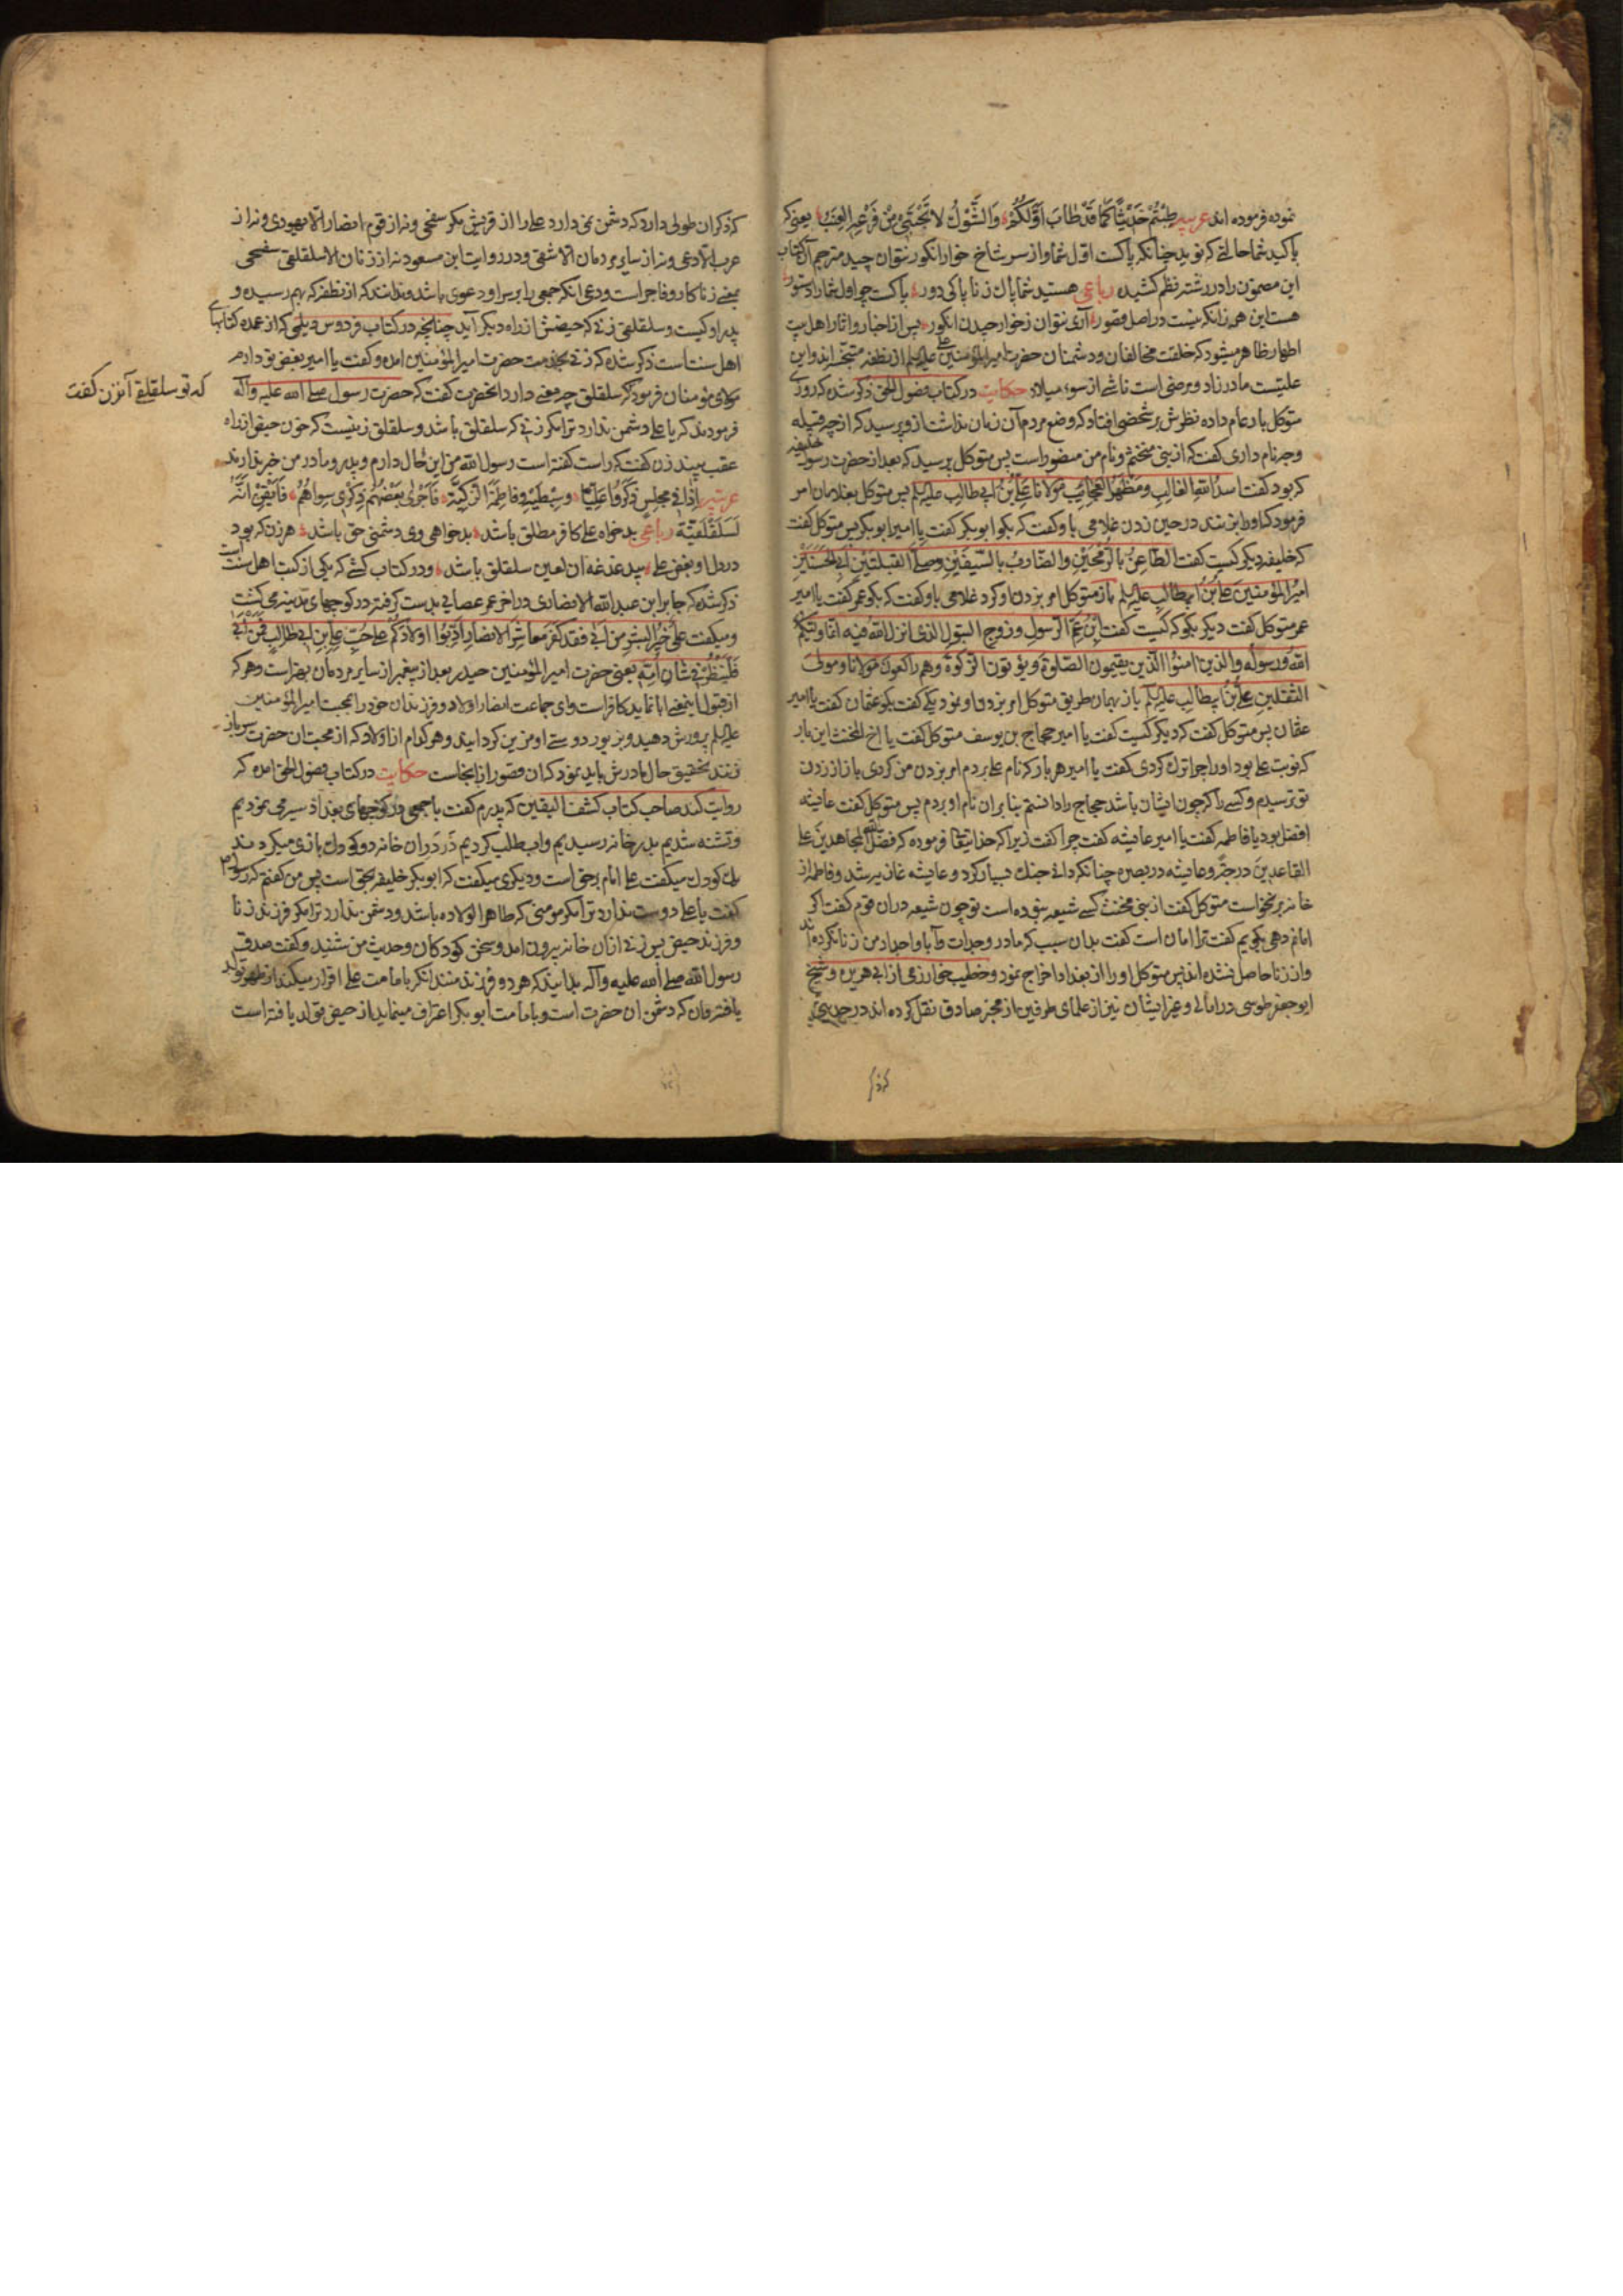 نموده فرموده اند عربیه طِبْتُمْ حَدیثًا کَمَا قَدْ طَابَ اَوَّلُکُمْ وَالشَّوْكُ لا تَجْتَنِي مِنْ فَرْعِهِ الْعِنَبُ یعنی که
پاکید شما حالئی که نوید چنانکه پاکست اوّل شما و از سر شاخ خوار انکور نتوان چید مترجم آن کتاب
این مضمون را در رشته نظم کشیده رباعی هستید شما پاك ز ناپاکی دور پاکست چو اول شما را دستور
هست این هم زانکه نیست در اصل قصور آری نتوان ز خوار چیدن انکور پس از اخبار و اثار اهل بیت
اطهار ظاهر میشود که خلقت مخالفان و دشمنان حضرت امیرالمؤمنین علی علیه السلم از نطفه اند و این
علیست مادرزاد و مرضی است ناشی از سوء میلاد حکایت در کتاب فصول الحق ذکر شده که روزی
متوکل بار عام داده نظرش بر شخصی افتاد که وضع مردم آن زمان نداشت از و پرسید که از چه قبیله
و چه نام داری کفت که از بنی مخنثم و نام من منصور است پس متوکل پرسید که بعد از حضرت رسول خلیفه
که بود کفت اسد الله الغالب و مظهر العجایب مولانا علی بن ابی طالب علیه السلم پس متوکل بغلامان امر
فرمود که او را بزنند در حین زدن غلامی باو کفت که بکو ابو بکر کفت یا امیر ابو بکر پس متوکل کفت
که خلیفه دیکر کیست کفت الطاعن بالرمحین والضارب بالسیفین وصلی القبلتین ابی الحسنین
امیر المؤمنین علی بن ابیطالب علیه السلم باز متوکل امر بزدن او کرد غلامی باو کفت که بکو عمر کفت یا امیر
عمر متوکل کفت دیکر بکو که کیست کفت ابن عم الرسول و زوج البتول الذی انزل الله فیه انما ولیکم
الله ورسوله والذین امنوا الذین یقیمون الصلوة ویؤتون الزکوة وهم راکعون مولانا ومولی
الثقلین علی بن ابیطالب علیه السلم باز بهمان طریق متوکل امر بزدن او نمود یکی کفت بکو عثمان کفت یا امیر
عثمان پس متوکل کفت که دیکر کیست کفت یا امیر حجاج بن یوسف متوکل کفت یا اخ المخنث این بار
که نوبت علی بود او را چرا ترك کردی کفت یا امیر هر بار که نام علی بردم امر بزدن من کردی باز از زدن
تو ترسیدم و کسی را که چون ایشان باشد حجاج را دانستم بنا بر ان نام او بردم پس متوکل کفت عایشه
افضل بود یا فاطمه کفت یا امیر عایشه کفت چرا کفت زیرا که خدایتعالی فرموده که فضل الله المجاهدین علی
القاعدین درجة و عایشه در بصره چنانکه دانی جنك بسیار کرد و عایشه غازیه شد و فاطمه از
خانه برنخواست متوکل کفت از بنی مخنث کسی شیعه نبوده است تو چون شیعه در ان قوم کفت اکر
امانم دهی بکویم کفت ترا امان است کفت بدان سبب که مادر و جدات و آبا و اجداد من زنا نکرده اند
و از زنا حاصل نشده اند پس متوکل او را از بغداد اخراج نمود و خطیب خوارزمی از ابی هریره و شیخ
ابو جعفر طوسی در امالی و غیر ایشان نیز از علمای طرفین از مخبر صادق نقل کرده اند در حدیثی
که ذکر ان طولی دارد که دشمن نمی دارد علی را از قریش مکر سفحی و نه از قوم انصار الا یهودی و نه از
عرب الا دعی و نه از سایر مردمان الا شقی و در روایت ابن مسعود نه از زنان الا سلقلقی سفحی
بمعنی زناکار و فاجر است و دعی انکه جمعی را بر سر او دعوی باشد و ندانند که از نطفه که بهم رسیده و
پدر او کیست و سلقلقی زنی که حیضش از راه دیکر آید چنانچه در کتاب فردوس دیلمی که از عمده کتابهای
اهل سنت است ذکر شده که زنی بخدمت حضرت امیر المؤمنین امده و کفت یا امیر بغض تو دارم
مولای مؤمنان فرمود که سلقلق چه معنی دارد انحضرت کفت که حضرت رسول صلی الله علیه وآله
که تو سلقلقی آنزن کفت
فرمودند که یا علی دشمن ندارد ترا مکر زنی که سلقلق باشد و سلقلق زنیست که خون حیض از راه
عقب بیند زن کفت که راست کفته است رسول الله من این حال دارم و پدر و مادر من خبر ندارند
عربیه اِذَا فِي مَجْلِسٍ ذَکَرُوا عَلِیًّا وَسِبْطَیْهِ وَفَاطِمَةَ الزَّکِیَّة فَاَجْرٰی بَعْضُهُمْ ذِکْرٰی سِوَاهُمْ فَاَیْقِنْ اَنَّهُ
لَسَلَقْلَقِیَّة رباعی بدخواه علی کافر مطلق باشد بدخواهی وی دشمنی حق باشد هر زن که بود
در دل او بغض علی بیدغدغه ان لعین سلقلق باشد و در کتاب کشی که یکی از کتب اهل سنت است
ذکر شده که جابر ابن عبد الله الانصاری در اخر عمر عصایی بدست کرفته در کوچهای مدینه می کشت
و میکفت علی خیر البشر من ابی فقد کفر معاشر الانصار ادبوا اولادکم علی حب علی بن ابی طالب فمن ابی
فلینظر فی شان امه یعنی حضرت امیر المؤمنین حیدر بعد از پیغمبر از سایر مردمان بهتر است و هر که
از قبول اینمعنی ابا نماید کافر است وای جماعت انصار اولاد و فرزندان خود را بمحبت امیر المؤمنین
علیه السلم پرورش دهید و بزیور دوستی او مزین کردانید و هر کدام از اولاد که از محبت ان حضرت سر باز
زنند تحقیق حال مادرش باید نمود که ان قصور از انجاست حکایت در کتاب فصول الحق امده که
روایت کند صاحب کتاب کشف الیقین که پدرم کفت با جمعی در کوچهای بغداد سیر می نمودیم
و تشنه شدیم بدر خانه رسیدیم و اب طلب کردیم در در ان خانه دو کودك بازی میکردند
یك کودك میکفت علی امام برحق است و دیکری میکفت که ابو بکر خلیفه بحق است پس من کفتم که رسول
کفت یا علی دوست ندارد ترا مکر مومنی که طاهر الولاده باشد و دشمن ندارد ترا مکر فرزند زنا
و فرزند حیض پس زنی از ان خانه بیرون امد و سخن کودکان و حدیث من شنید و کفت صدق
رسول الله صلی الله علیه وآله بدانید که هر دو فرزند منند انکه بامامت علی اقرار میکند از طهر تولد
یافته و ان که دشمن ان حضرت است و بامامت ابو بکر اعتراف مینماید از حیض تولد یافته است